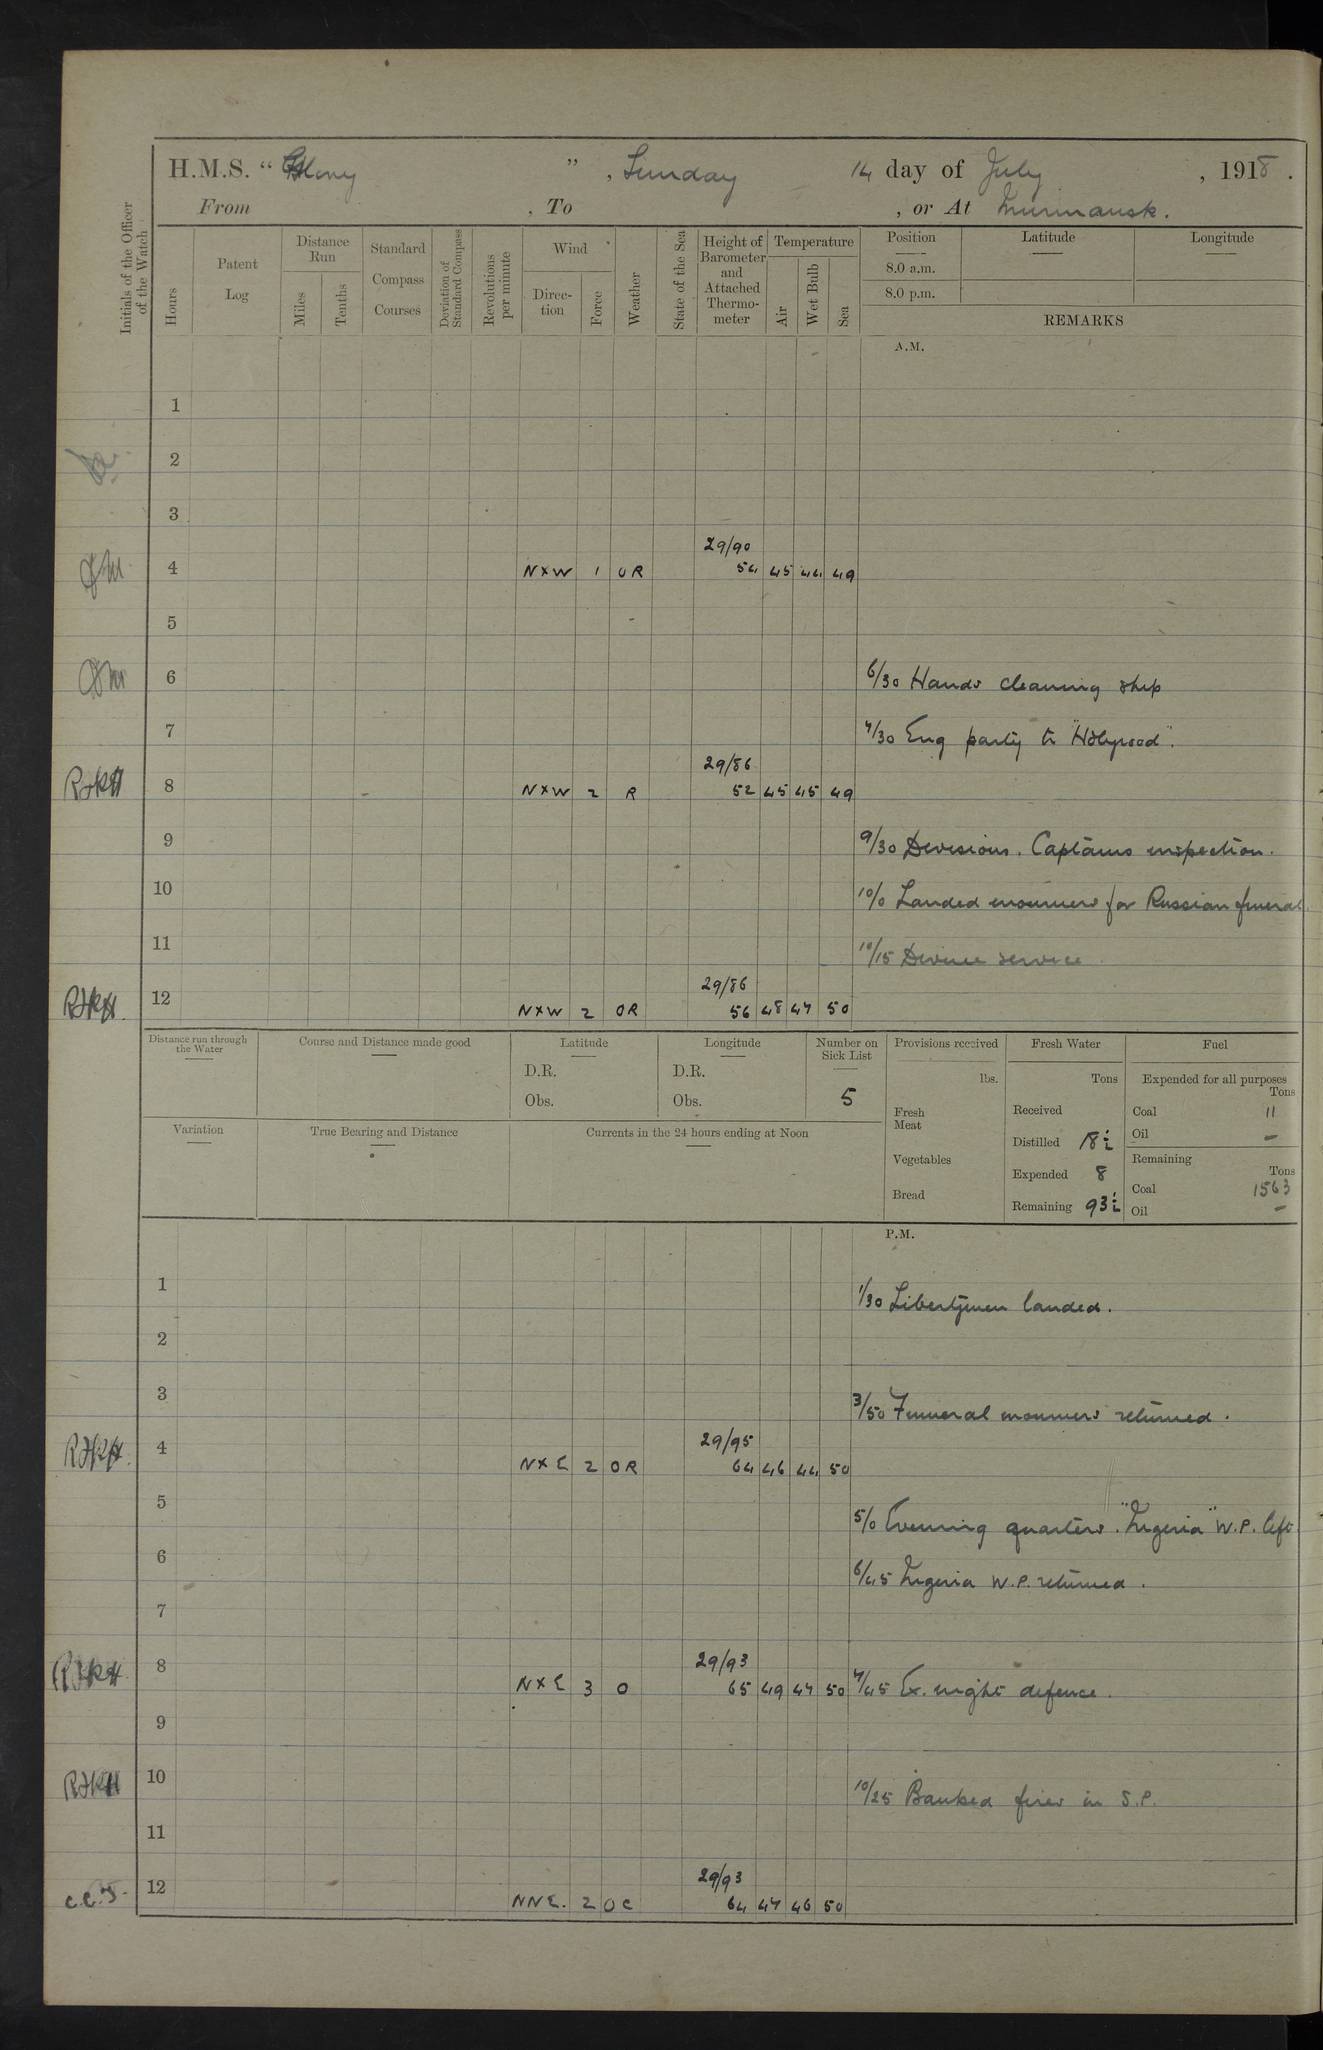 H.M.S. “ Glory ” , Sunday 14 day of July , 1918 .
From , To , or At Murmansk.
Initials of the Officer of the Watch
Hours
Patent Log
Distance Run
Miles
Tenths
Standard Compass Courses
Deviation of Standard Compass
Revolutions per minute
Wind
Direc- tion
Force
Weather
State of the Sea
Height of Barometer and Attached Thermo- meter
Temperature
Air
Wet Bulb
Sea
Position
Latitude
Longitude
8.0 a.m.
8.0 p.m.
REMARKS
A.M.
1
2
3
29/90
4 N×W 1 OR 54 45 44 49
5
6 6/30 Hands cleaning ship
7 7/30 Eng party to "Holyrood".
29/86
RJKH 8 N×W 2 R 52 45 45 49
9 9/30 Divisions. Captains inspection.
10 10/0 Landed mourners for Russian funeral.
11 10/15 Divine service
29/86
RJKH. 12 N×W 2 OR 56 48 47 50
Distance run through the Water
Course and Distance made good
Latitude
D.R.
Obs.
Longitude
D.R.
Obs.
Number on Sick List
5
Provisions received
lbs.
Fresh Meat
Vegetables
Bread
Fresh Water
Tons
Received
Distilled 18½
Expended 8
Remaining 93½
Fuel
Expended for all purposes
Tons
Coal 11
Oil –
Remaining
Tons
Coal 1563
Oil –
Variation
True Bearing and Distance
Currents in the 24 hours ending at Noon
P.M.
1 1/30 Libertymen landed.
2
3 3/50 Funeral mourners returned.
29/95
RJKH. 4 N×E 2 OR 64 46 44 50
5 5/0 Evening quarters. "Nigeria" W.P. left
6 6/45 Nigeria W.P. returned.
7
29/93
RJKH 8 N×E 3 O 65 49 47 50 7/45 Ex. night defence.
9
RJKH 10 10/25 Banked fires in S.P.
11
29/93
C.C.J. 12 NNE. 2 OC 64 47 46 50